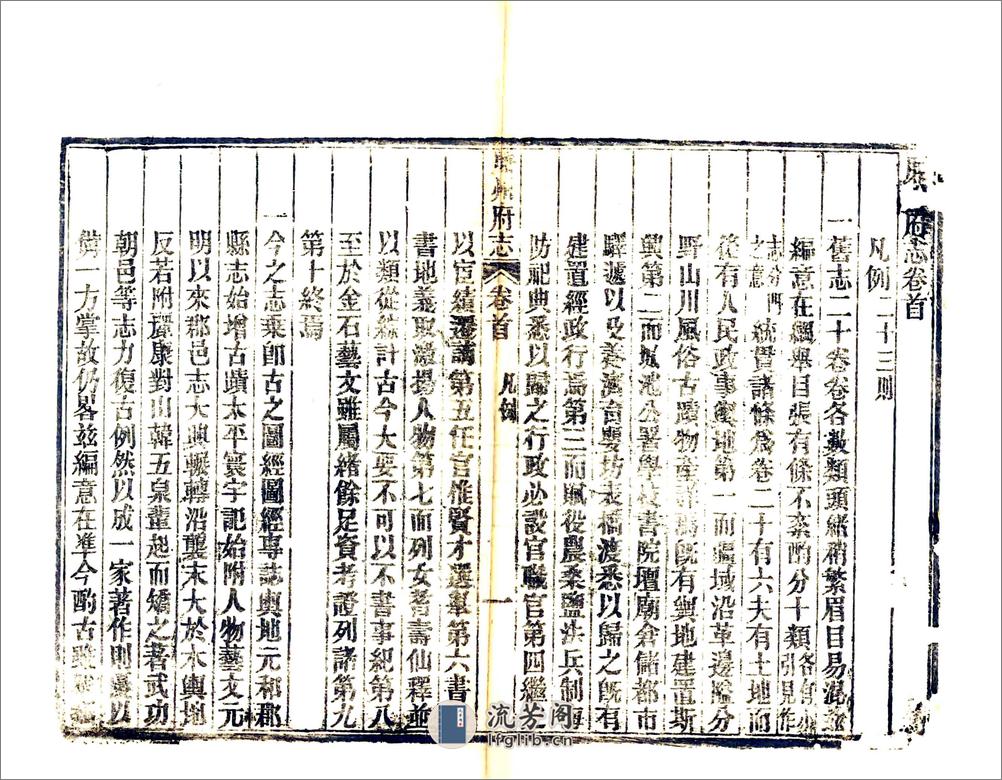 府志卷首
凡例二十三則
一舊志二十卷卷各數類頭緒稍繁眉目易混茲
編意在綱舉目張有條不紊酌分十類各有小引見作志分門之意統貫諸條為卷二十有六夫有土地而
從有人民政事輿地第一而疆域沿革邊隘分
野山川風俗古蹟物產詳焉既有輿地建置斯
興第二而城池公署學校書院壇廟倉儲都市
驛遞以及養濟苜蓿坊表橋渡悉以歸之既有
建置經政行焉第三而賦役農桑鹽法兵制海
防祀典悉以歸之行政必設官職官第四繼
以宦績第五任官惟賢才選舉第六書
書地義取激揚人物第七而列女耆壽仙釋並
以類從統計古今大要不可以不書事紀第八
至於金石藝文雖屬緒餘足資考證列諸第九
第十終焉
一今之志乘即古之圖經圖經專誌輿地元和郡
縣志始增古蹟太平寰宇記始附人物藝文元
明以來郡邑志大典輾轉沿襲末大於本輿地
反若附讌康對山韓五泉輩起而矯之著武功
朝邑等志力復古例然以成一家著作則
備一方掌故仍畧茲編意在準今酌古
府志
卷首
凡例
一
流芳阁
lfglib.cn